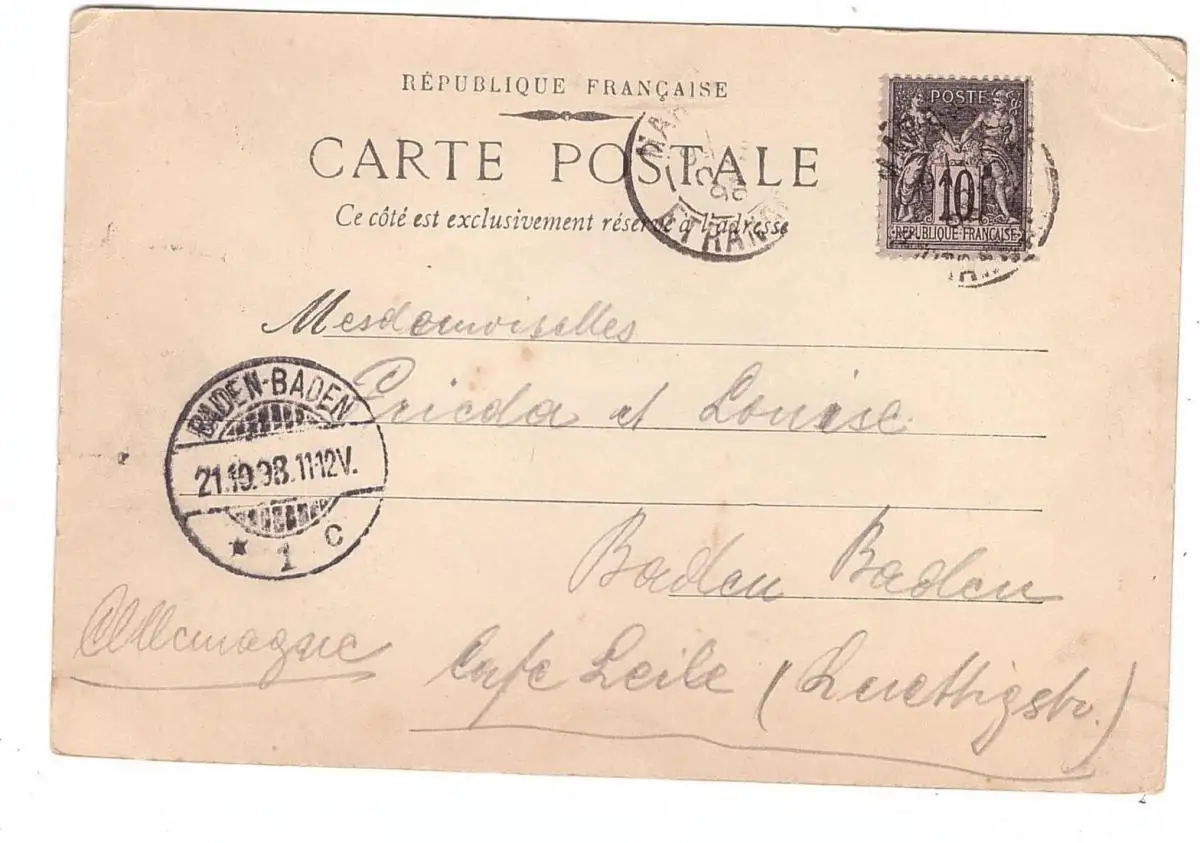 RÉPUBLIQUE FRANÇAISE
CARTE POSTALE
Ce côté est exclusivement réservé à l'adresse
POSTE
10
REPUBLIQUE FRANÇAISE
ETRANG
Mesdemoiselles
Frieda et Louise
BADEN-BADEN
21.10.98.11-12V.
* 1 c
Baden Baden
Allemagne
Café Leile (